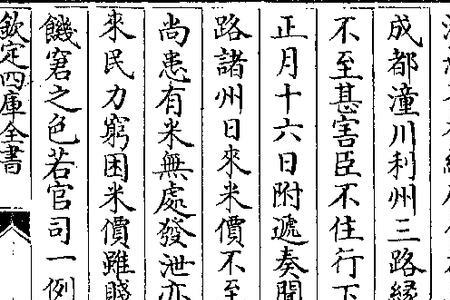 成都潼川利州三路緣
不至甚害臣不住行下
正月十六日附遞奏聞
路諸州日來米價不至
尚患有米無處發泄亦
來民力窮困米價雖賤
饑窘之色若官司一例
欽定四庫全書